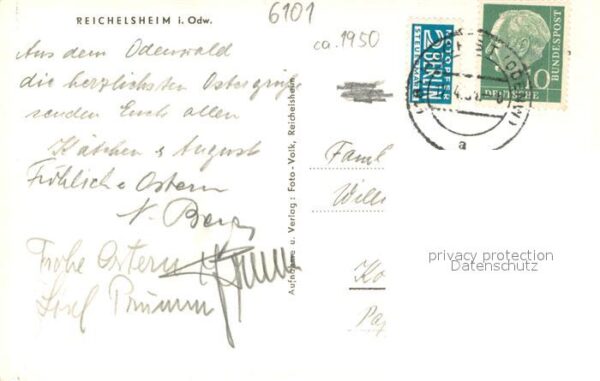 REICHELSHEIM i. Odw.
6101
ca. 1950
Aus dem Odenwald
die herzlichsten Ostergrüße
senden Euch allen
Kätchen & August
Fröhliche Ostern
N. Berg
Frohe Ostern
Prumm
Aufnahme u. Verlag: Foto-Volk, Reichelsheim
NOTOPFER
2 BERLIN
STEUERMARKE
DEUTSCHE
BUNDESPOST
a
Famil
Willi
Ko
privacy protection
Datenschutz